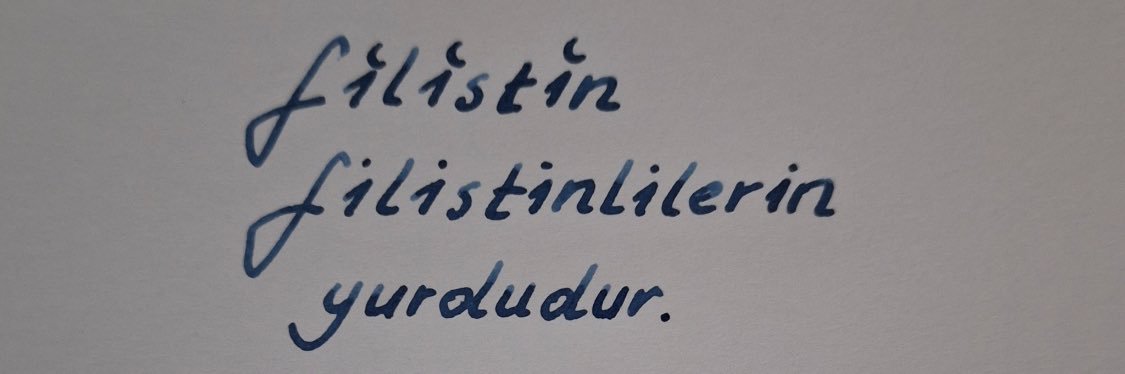 filistin
filistinlilerin
yurdudur.